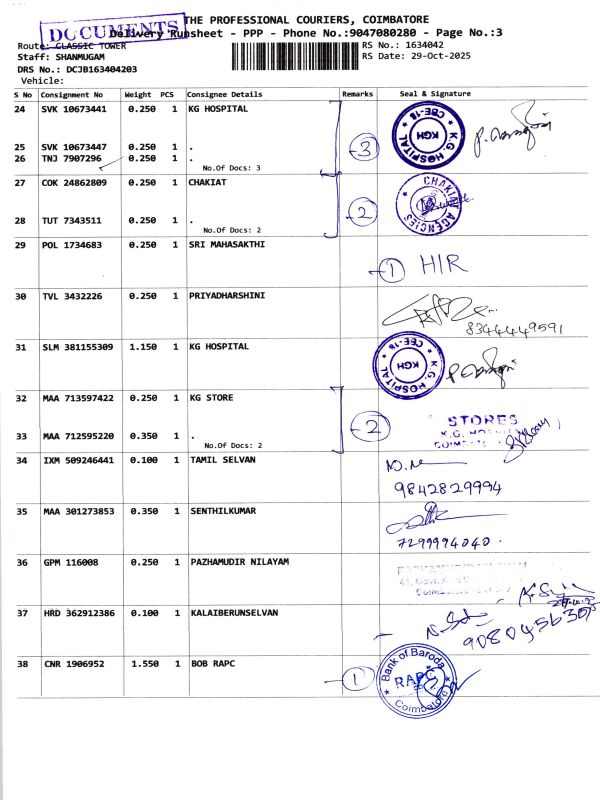 DOCUMENTS
THE PROFESSIONAL COURIERS, COIMBATORE
Delivery Runsheet - PPP - Phone No.:9047080280 - Page No.:3
Route: CLASSIC TOWER
RS No.: 1634042
Staff: SHANMUGAM
RS Date: 29-Oct-2025
DRS No.: DCJB163404203
Vehicle:
S No Consignment No Weight PCS Consignee Details Remarks Seal & Signature
24 SVK 10673441 0.250 1 KG HOSPITAL
25 SVK 10673447 0.250 1 .
26 TNJ 7907296 0.250 1 .
No.Of Docs: 3
3
K.G. HOSPITAL KGH CBE-18
27 COK 24862809 0.250 1 CHAKIAT
28 TUT 7343511 0.250 1 .
No.Of Docs: 2
2
CHAKIAT AGENCIES
29 POL 1734683 0.250 1 SRI MAHASAKTHI
1 HIR
30 TVL 3432226 0.250 1 PRIYADHARSHINI
8344449591
31 SLM 381155309 1.150 1 KG HOSPITAL
K.G. HOSPITAL KGH CBE-18
32 MAA 713597422 0.250 1 KG STORE
33 MAA 712595220 0.350 1 .
No.Of Docs: 2
2
STORES
K.G.
34 IXM 509246441 0.100 1 TAMIL SELVAN
9842829994
35 MAA 301273853 0.350 1 SENTHILKUMAR
7299994040.
36 GPM 116008 0.250 1 PAZHAMUDIR NILAYAM
37 HRD 362912386 0.100 1 KALAIBERUNSELVAN
9080456305
38 CNR 1906952 1.550 1 BOB RAPC
1
Bank of Baroda
RAPC
Coimbatore